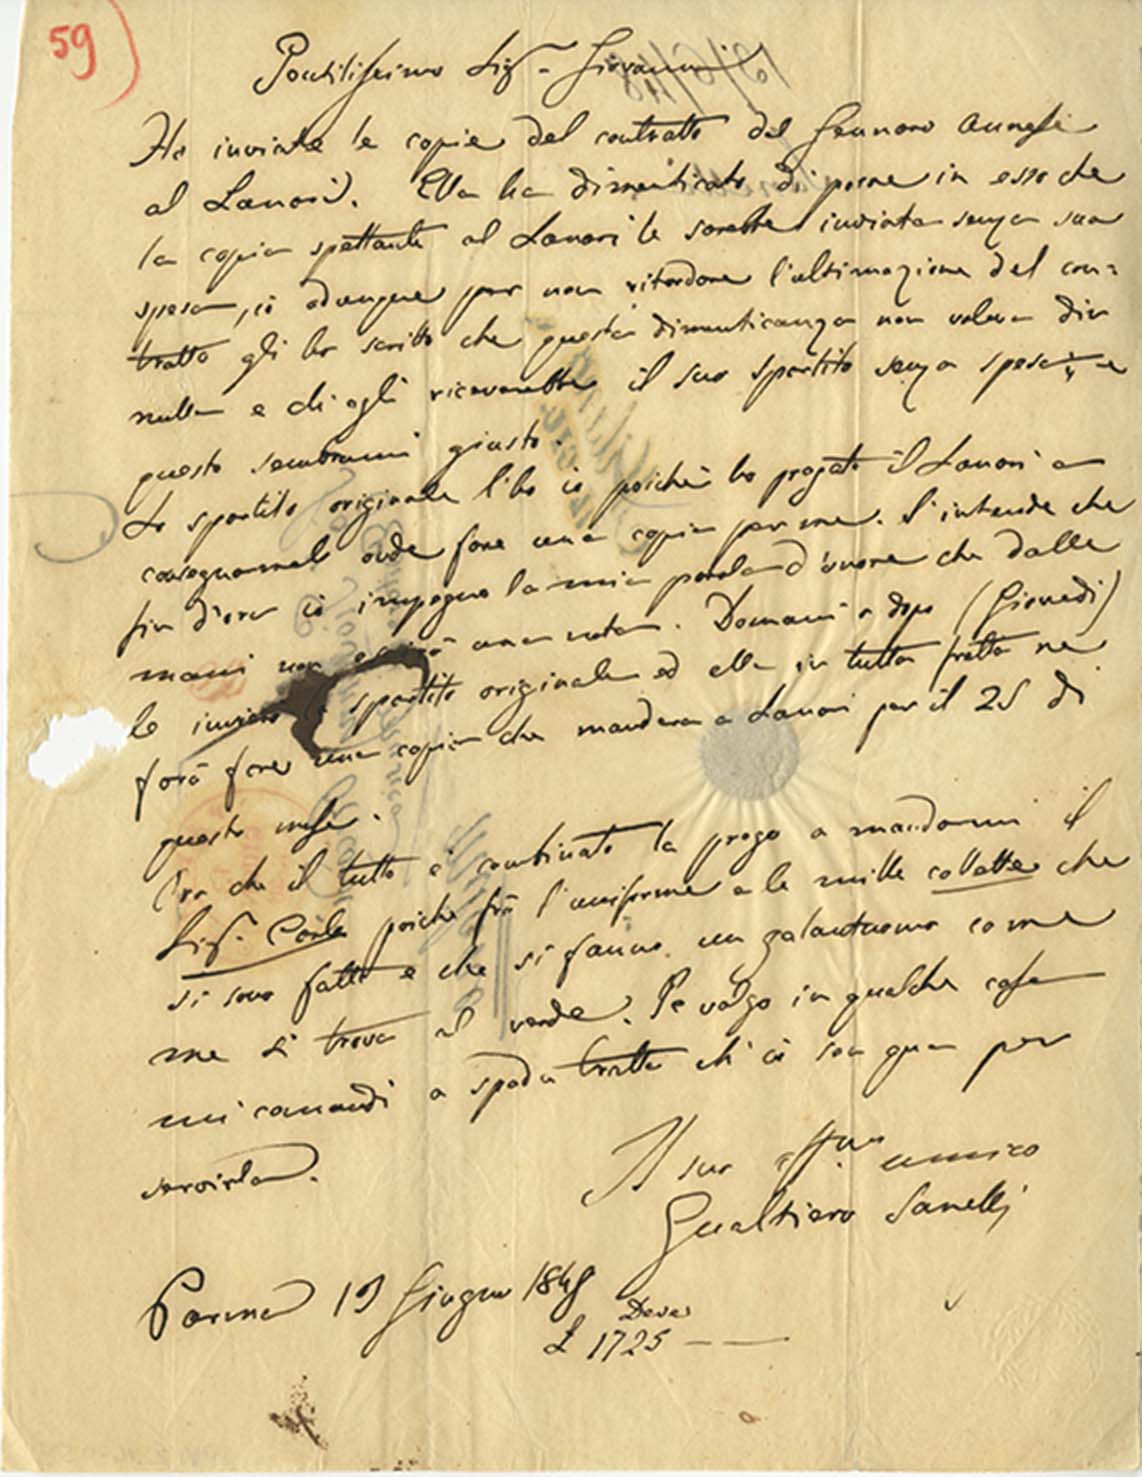 59)
Gentilissimo Sig. Giovanni
Ho inviate le copie del contratto del Gennaro Annese
al Lanari. Ella ha dimenticato di porre in esso che
la copia spettante al Lanari le sarebbe inviata senza sua
spesa, io adunque per non ritardare l'ultimazione del con=
tratto gli ho scritto che questa dimenticanza non voleva dir
nulla e ch'egli riceverebbe il suo spartito senza spesa e
questo sembrami giusto.
Lo spartito originale l'ho io poichè ho pregato il Lanari a
consegnarmelo onde fare una copia per me. S'intende che
fin d'ora io impegno la mia parola d'onore che dalle
mani non escirà una nota. Domani o dopo (Giovedì)
le invierò spartito originale ed ella in tutta fretta ne
farà fare una copia che manderà a Lanari per il 25 di
questo mese.
Ora che il tutto è combinato la prego a mandarmi il
Sig. Carlo poichè frà l'uniforme e le mille collette che
si sono fatte e che si fanno un galantuomo come
me si trova al verde. Se valgo in qualche cosa
mi comandi a spada tratta ch'io son qua per
servirla.
Il suo aff.mo amico
Gualtiero Sanelli
Parma 19 Giugno 1848
Deve
£ 1725 — —